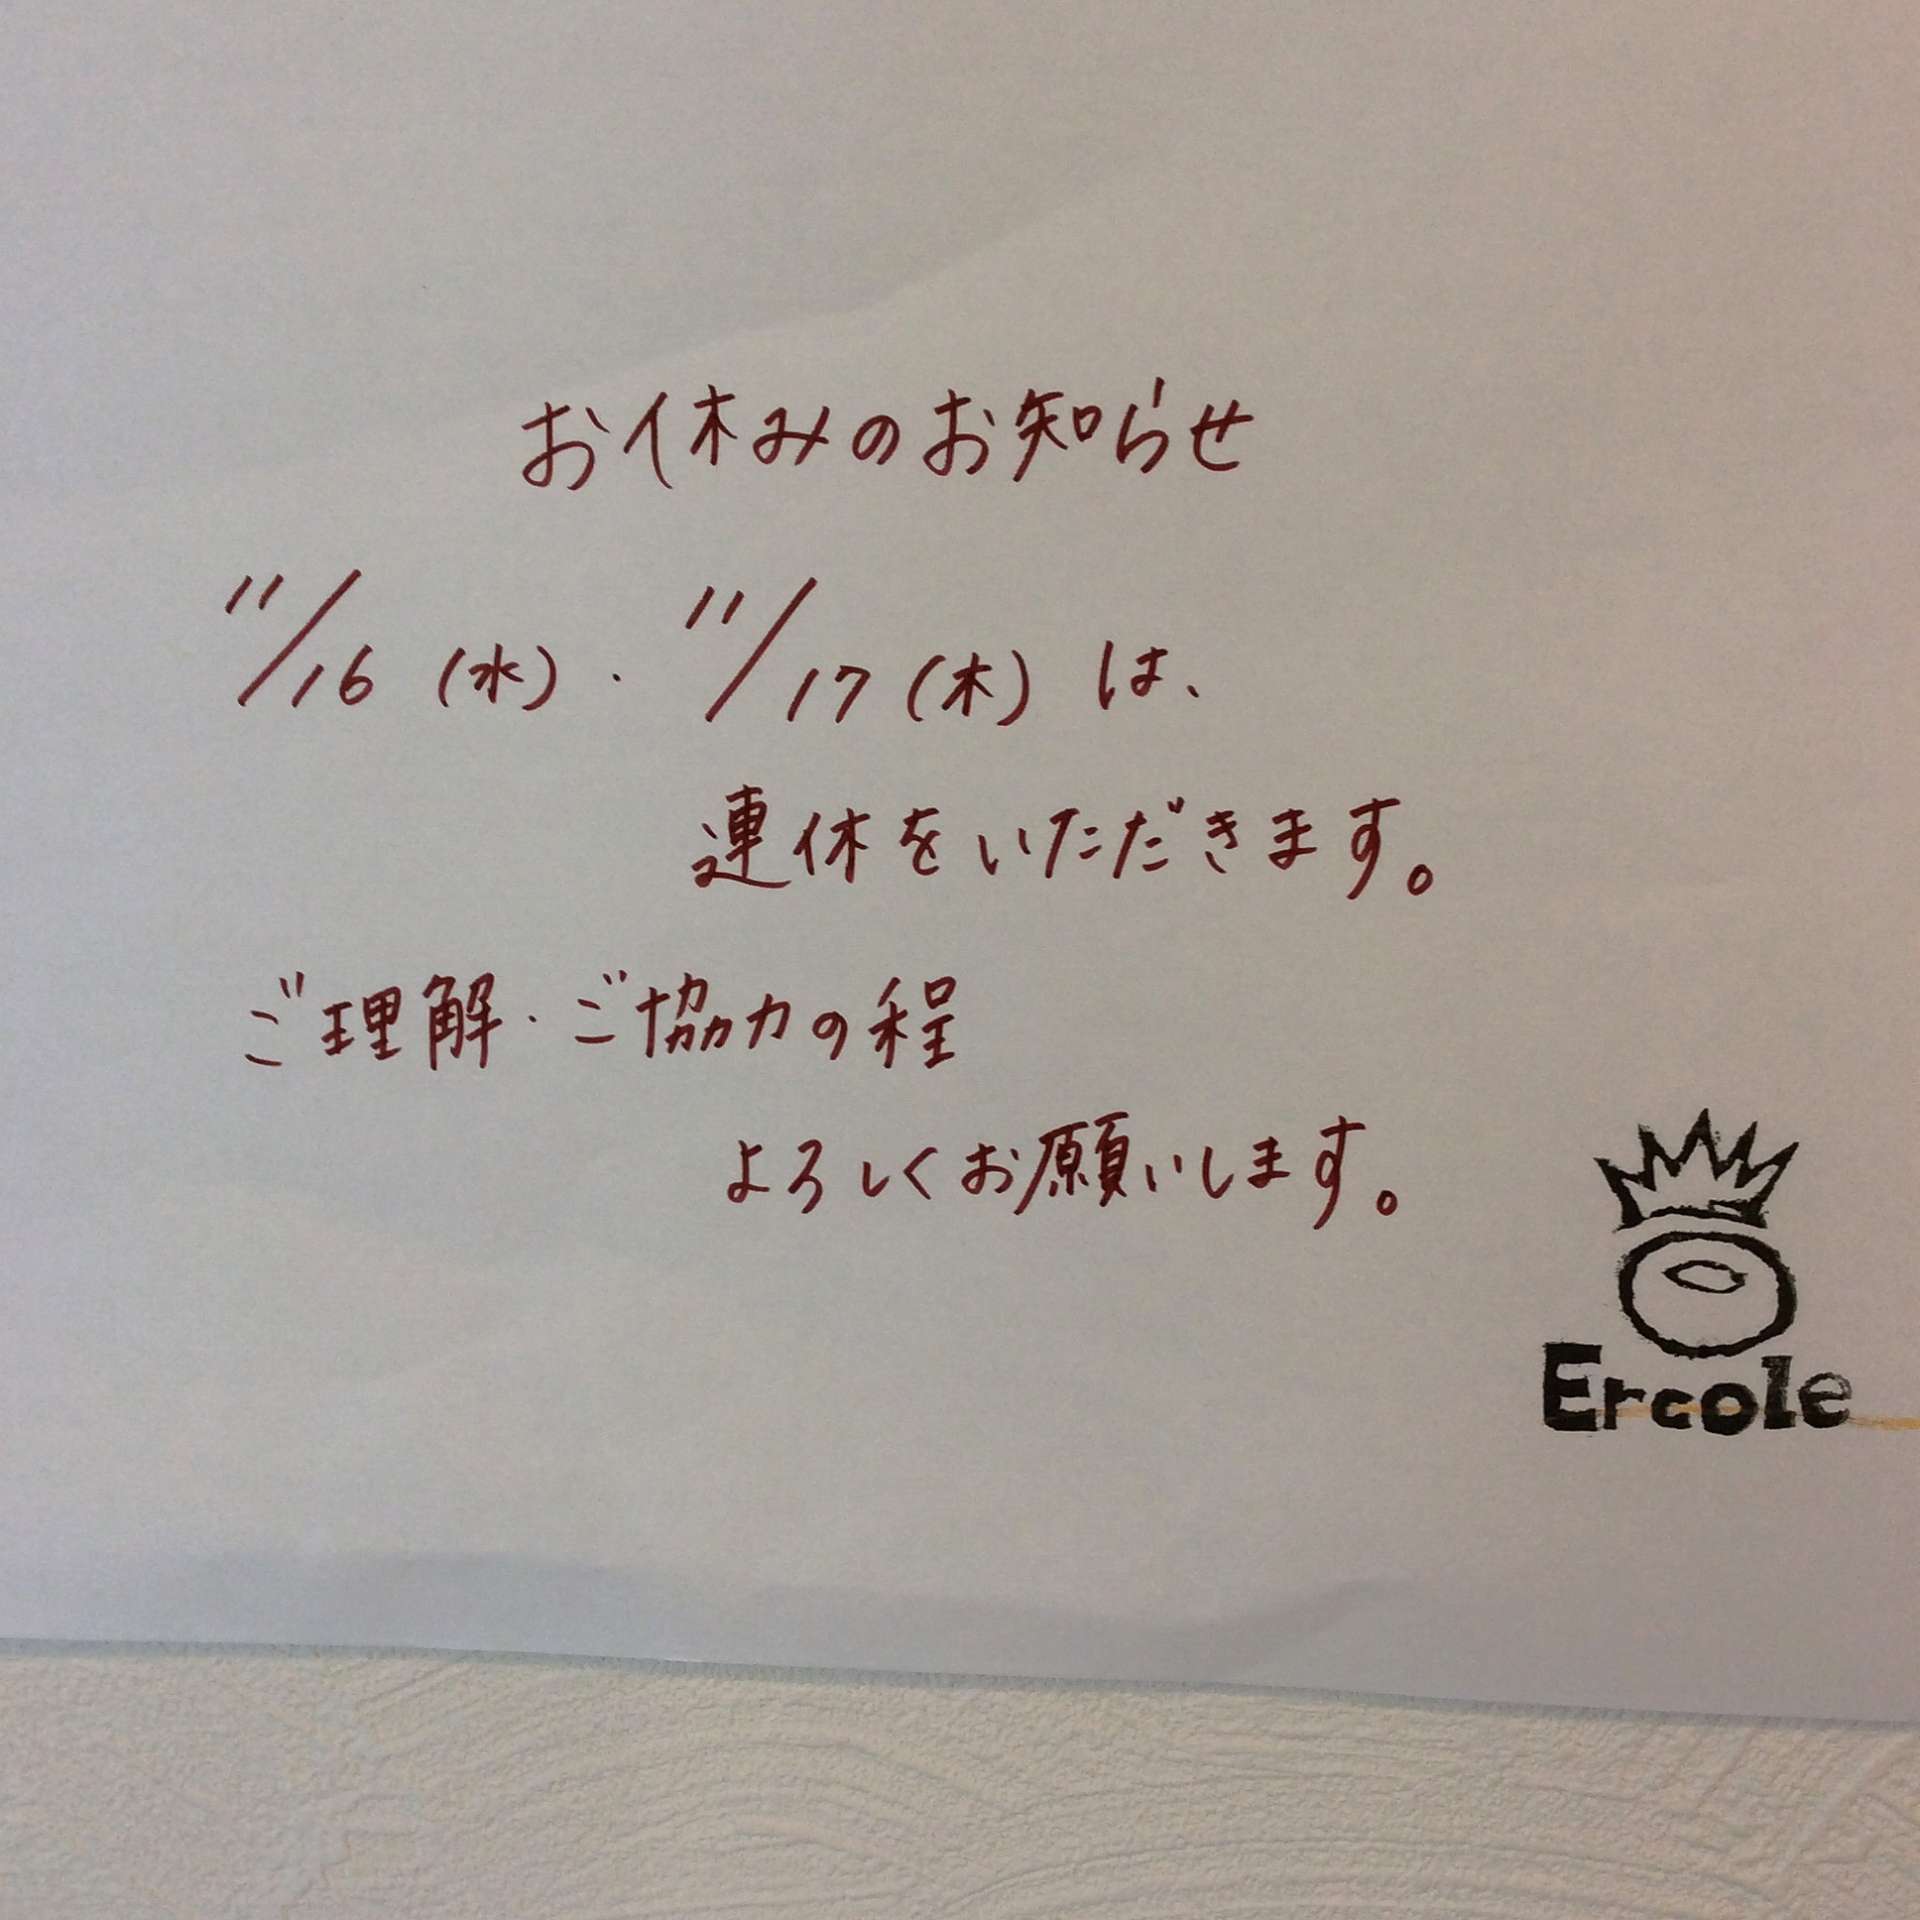 お休みのお知らせ
11/16(水)・11/17(木)は、
連休をいただきます。
ご理解・ご協力の程
よろしくお願いします。
Ercole